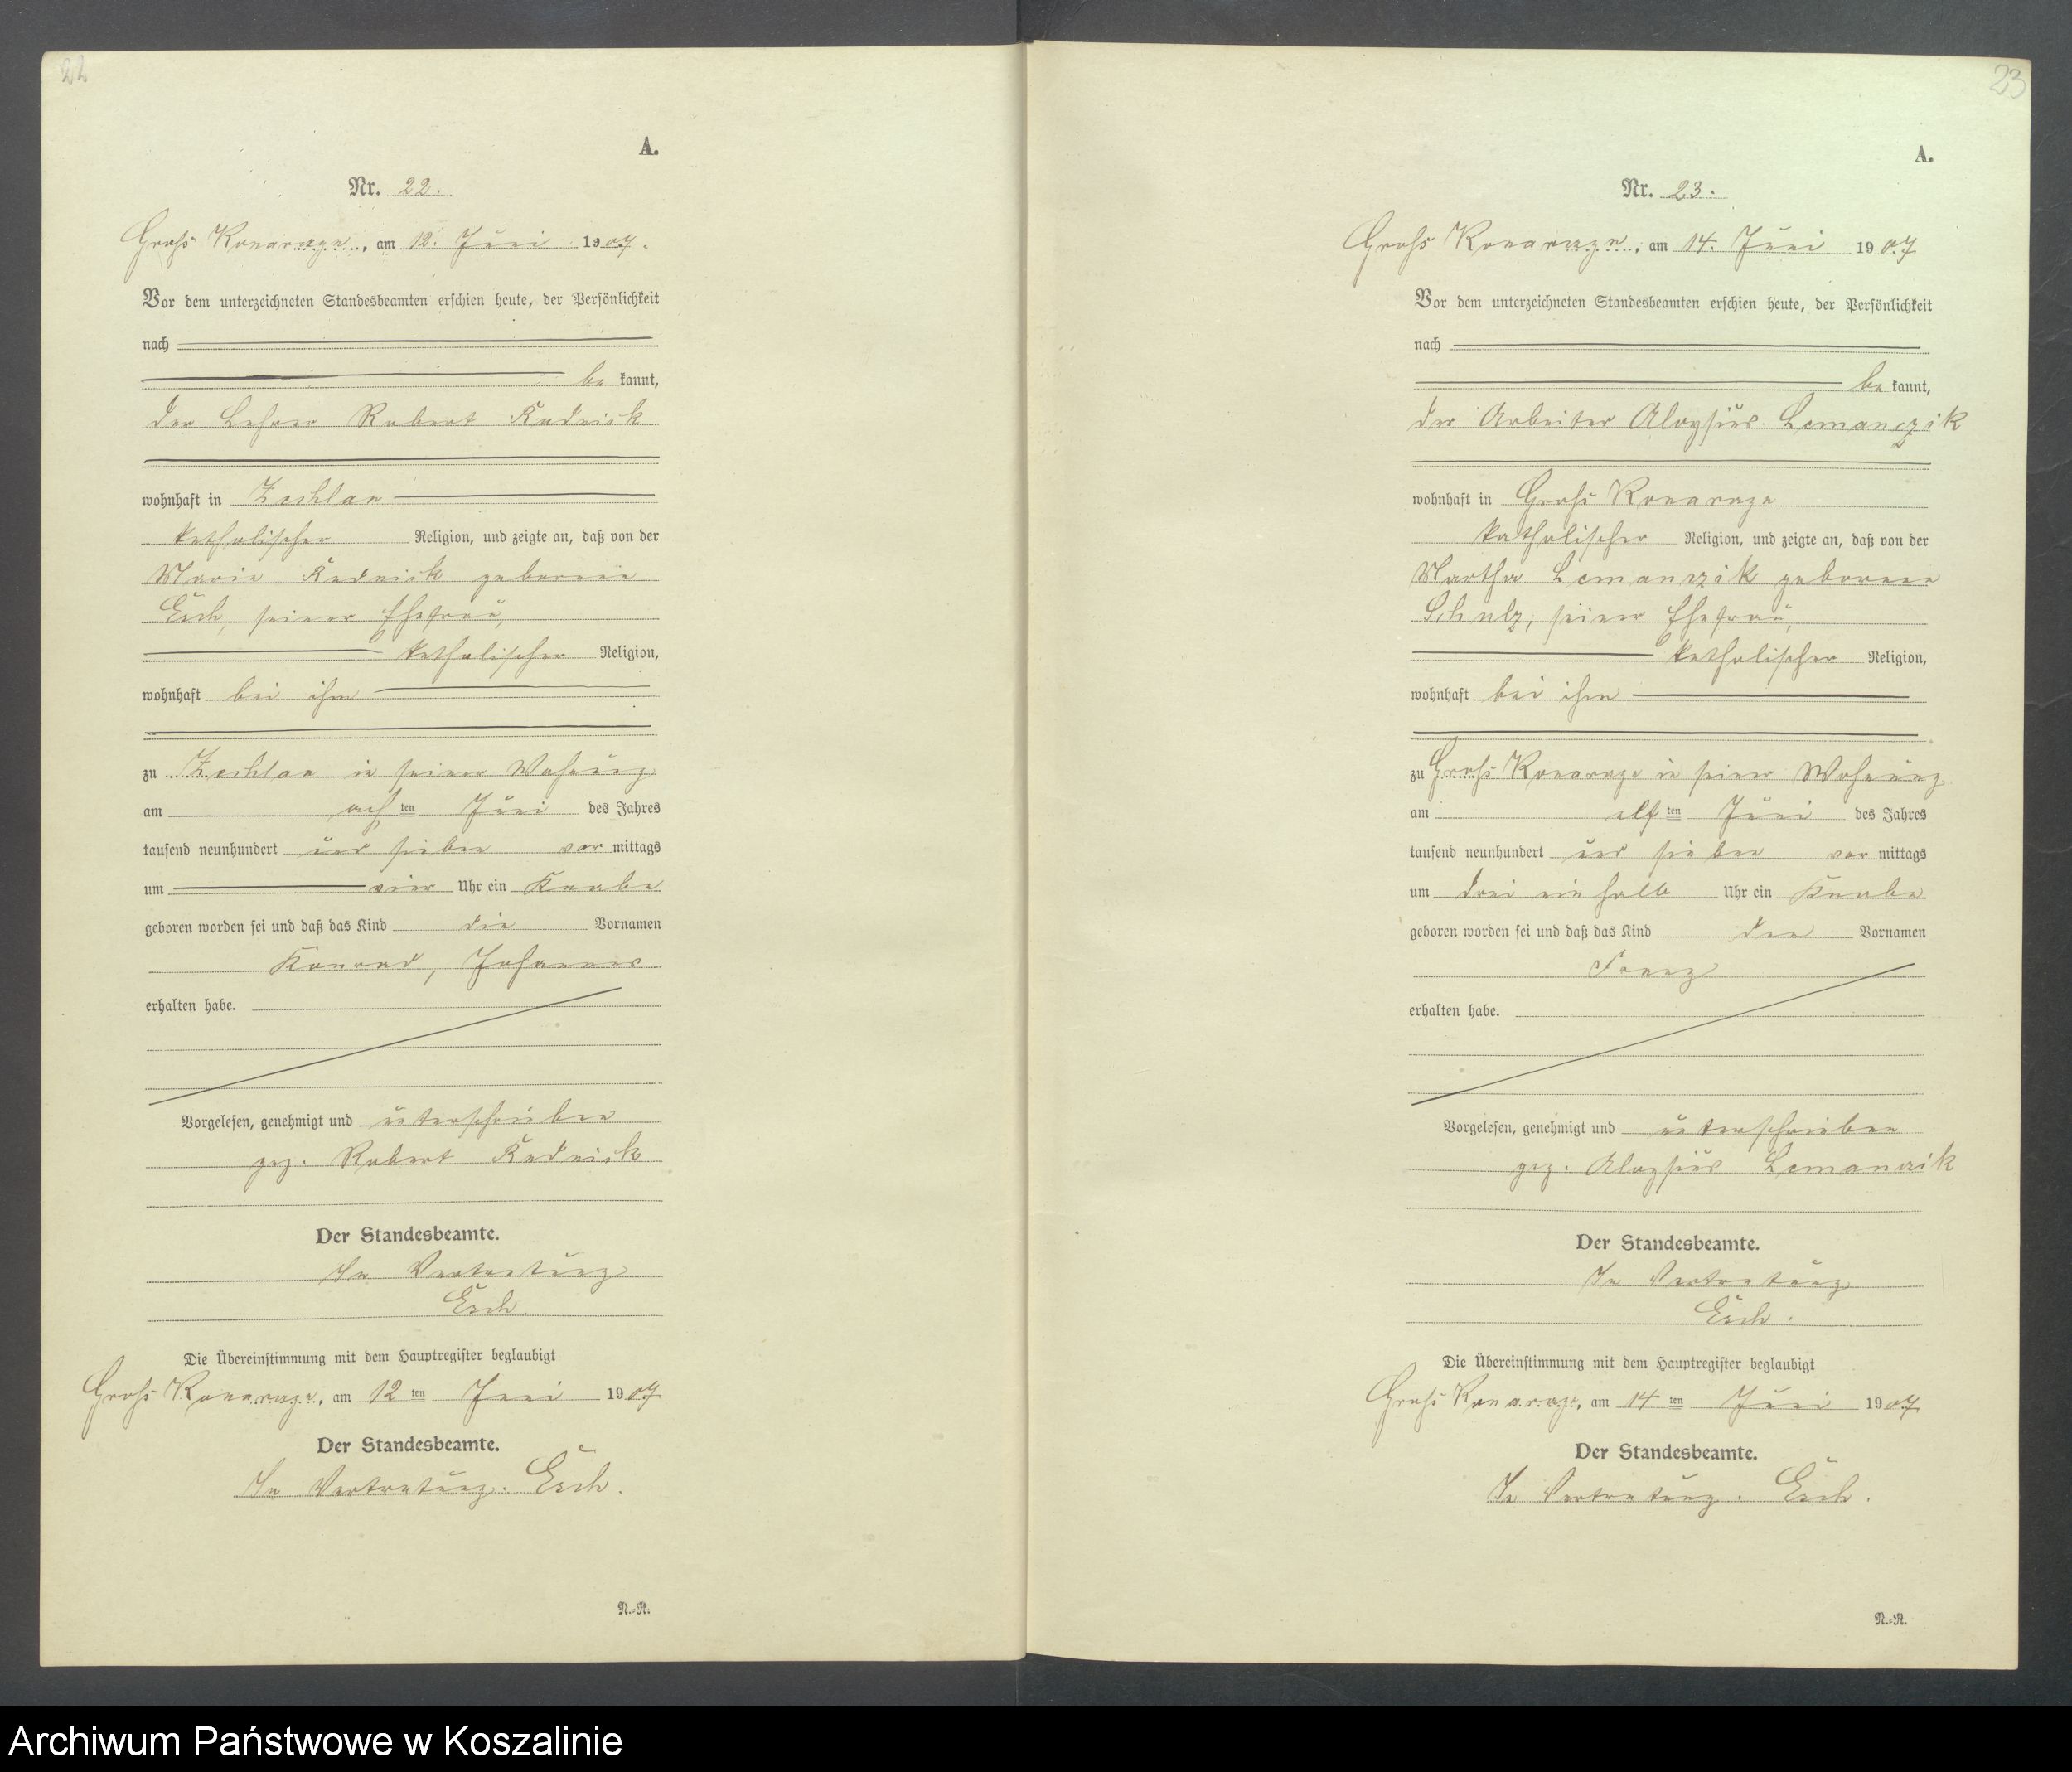 22
A.
Nr. 22.
Groß Konarczyn, am 12. Juni 1907.
Vor dem unterzeichneten Standesbeamten erschien heute, der Persönlichkeit
nach
be kannt,
der Lehrer Robert
wohnhaft in Zechlau
katholischer Religion, und zeigte an, daß von der
Marie geborene
Esch, seiner Ehefrau,
katholischer Religion,
wohnhaft bei ihm
zu Zechlau in seiner Wohnung
am achten Juni des Jahres
tausend neunhundert und sieben vor mittags
um vier Uhr ein Knabe
geboren worden sei und daß das Kind die Vornamen
Konrad, Johannes
erhalten habe.
Vorgelesen, genehmigt und unterschrieben
gez. Robert
Der Standesbeamte.
In Vertretung
Esch.
Die Übereinstimmung mit dem Hauptregister beglaubigt
Groß Konarczyn, am 12 ten Juni 1907
Der Standesbeamte.
In Vertretung. Esch.
N.-R.
23
A.
Nr. 23.
Groß Konarczyn, am 14. Juni 1907
Vor dem unterzeichneten Standesbeamten erschien heute, der Persönlichkeit
nach
be kannt,
der Arbeiter Aloysius Lemanczik
wohnhaft in Groß Konarczyn
katholischer Religion, und zeigte an, daß von der
Martha Lemanczik geborene
Schulz, seiner Ehefrau,
katholischer Religion,
wohnhaft bei ihm
zu Groß Konarczyn in seiner Wohnung
am elften Juni des Jahres
tausend neunhundert und sieben vor mittags
um drei ein halb Uhr ein Knabe
geboren worden sei und daß das Kind den Vornamen
Franz
erhalten habe.
Vorgelesen, genehmigt und unterschrieben
gez. Aloysius Lemanczik
Der Standesbeamte.
In Vertretung
Esch.
Die Übereinstimmung mit dem Hauptregister beglaubigt
Groß Konarczyn, am 14 ten Juni 1907
Der Standesbeamte.
In Vertretung. Esch.
N.-R.
Archiwum Państwowe w Koszalinie